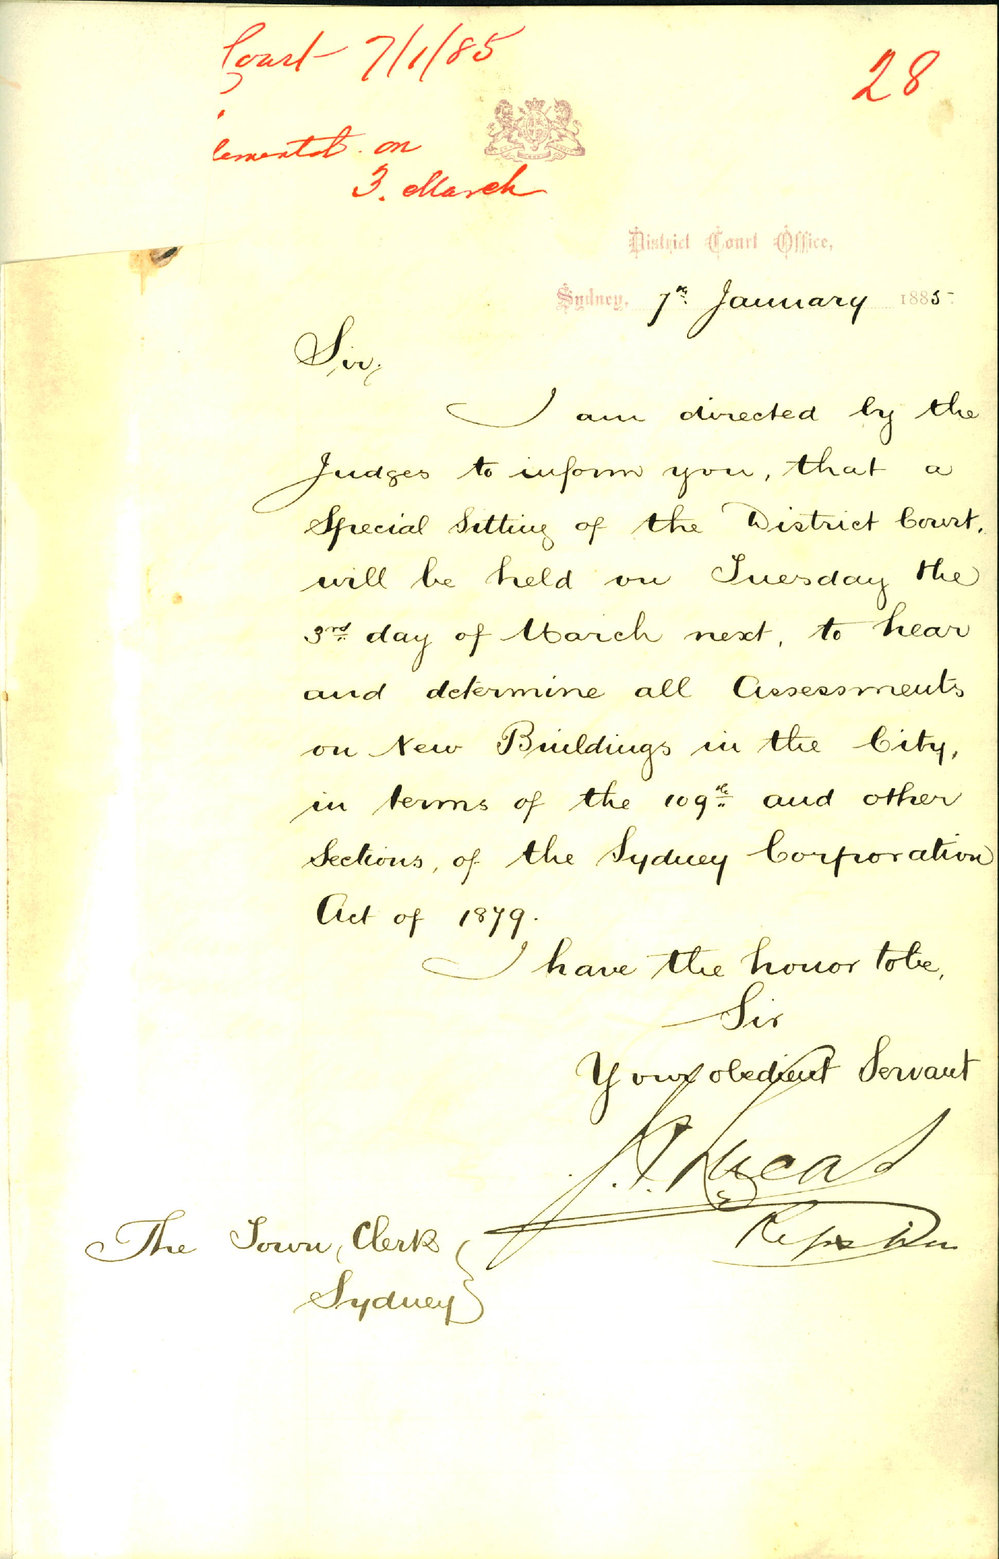 Court 7/1/85
28
on
3. March
District Court Office,
Sydney, 7th January 1885
Sir,
I am directed by the
Judges to inform you, that a
Special Sitting of the District Court,
will be held on Tuesday the
3rd day of March next, to hear
and determine all Assessments
on New Buildings in the City,
in terms of the 109th and other
Sections, of the Sydney Corporation
Act of 1879.
I have the honor to be,
Sir
Your obedient Servant
Lucas
Registrar
The Town Clerk
Sydney